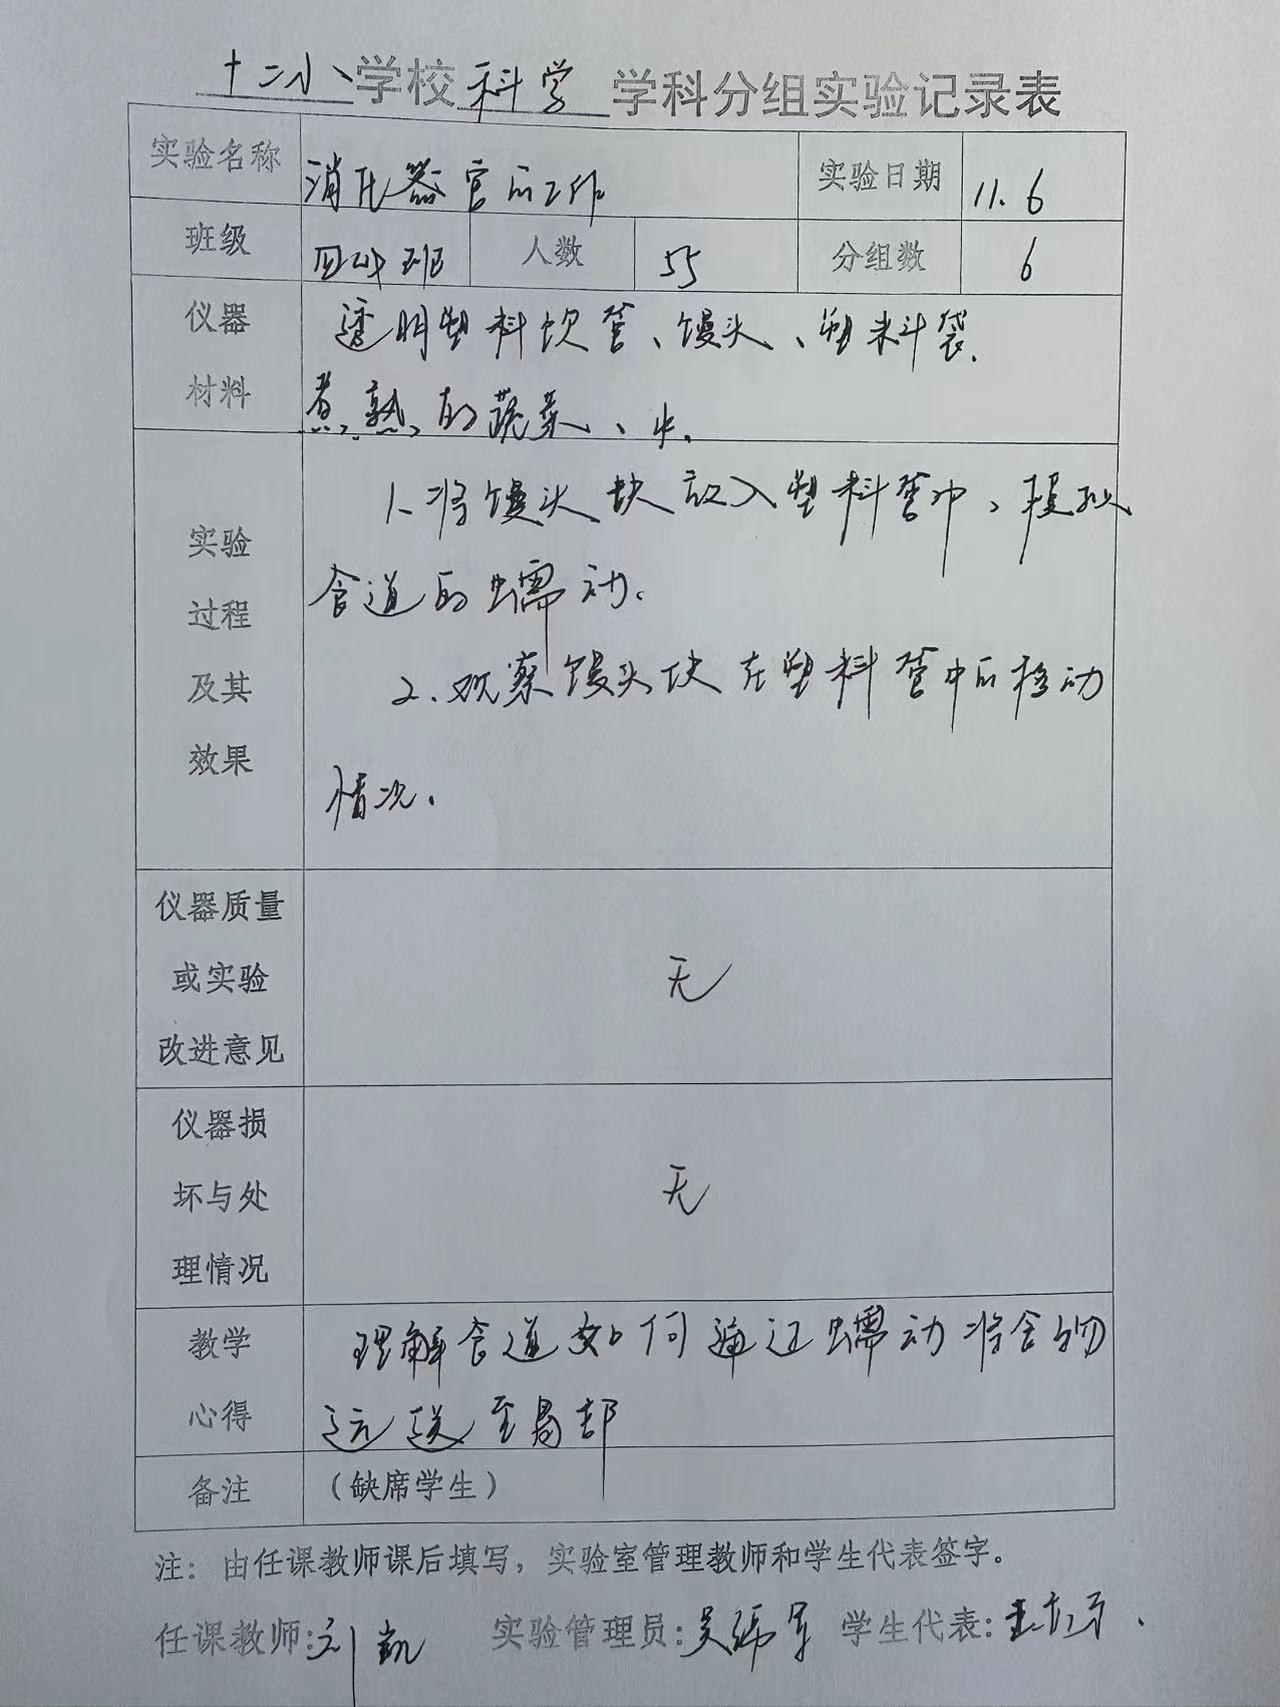 十二小学校科学学科分组实验记录表
实验名称 消化器官的工作 实验日期 11.6
班级 班 人数 55 分组数 6
仪器 透明塑料软管、馒头、塑料袋、
材料 煮熟的蔬菜、水。
1.将馒头块放入塑料管中,模拟
实验 食道的蠕动。
过程
及其 2.观察馒头块在塑料管中的移动
效果 情况.
仪器质量
或实验 无
改进意见
仪器损
坏与处 无
理情况
教学 理解食道如何通过蠕动将食物
心得 运送至胃部
备注 (缺席学生)
注: 由任课教师课后填写, 实验室管理教师和学生代表签字。
任课教师:刘凯 实验管理员:吴 军 学生代表: